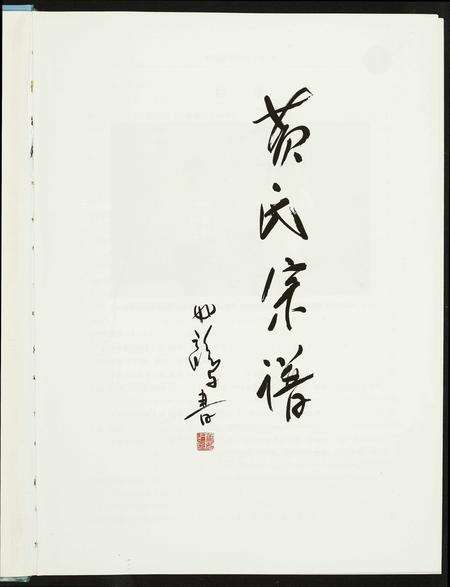 黄氏宗谱
书